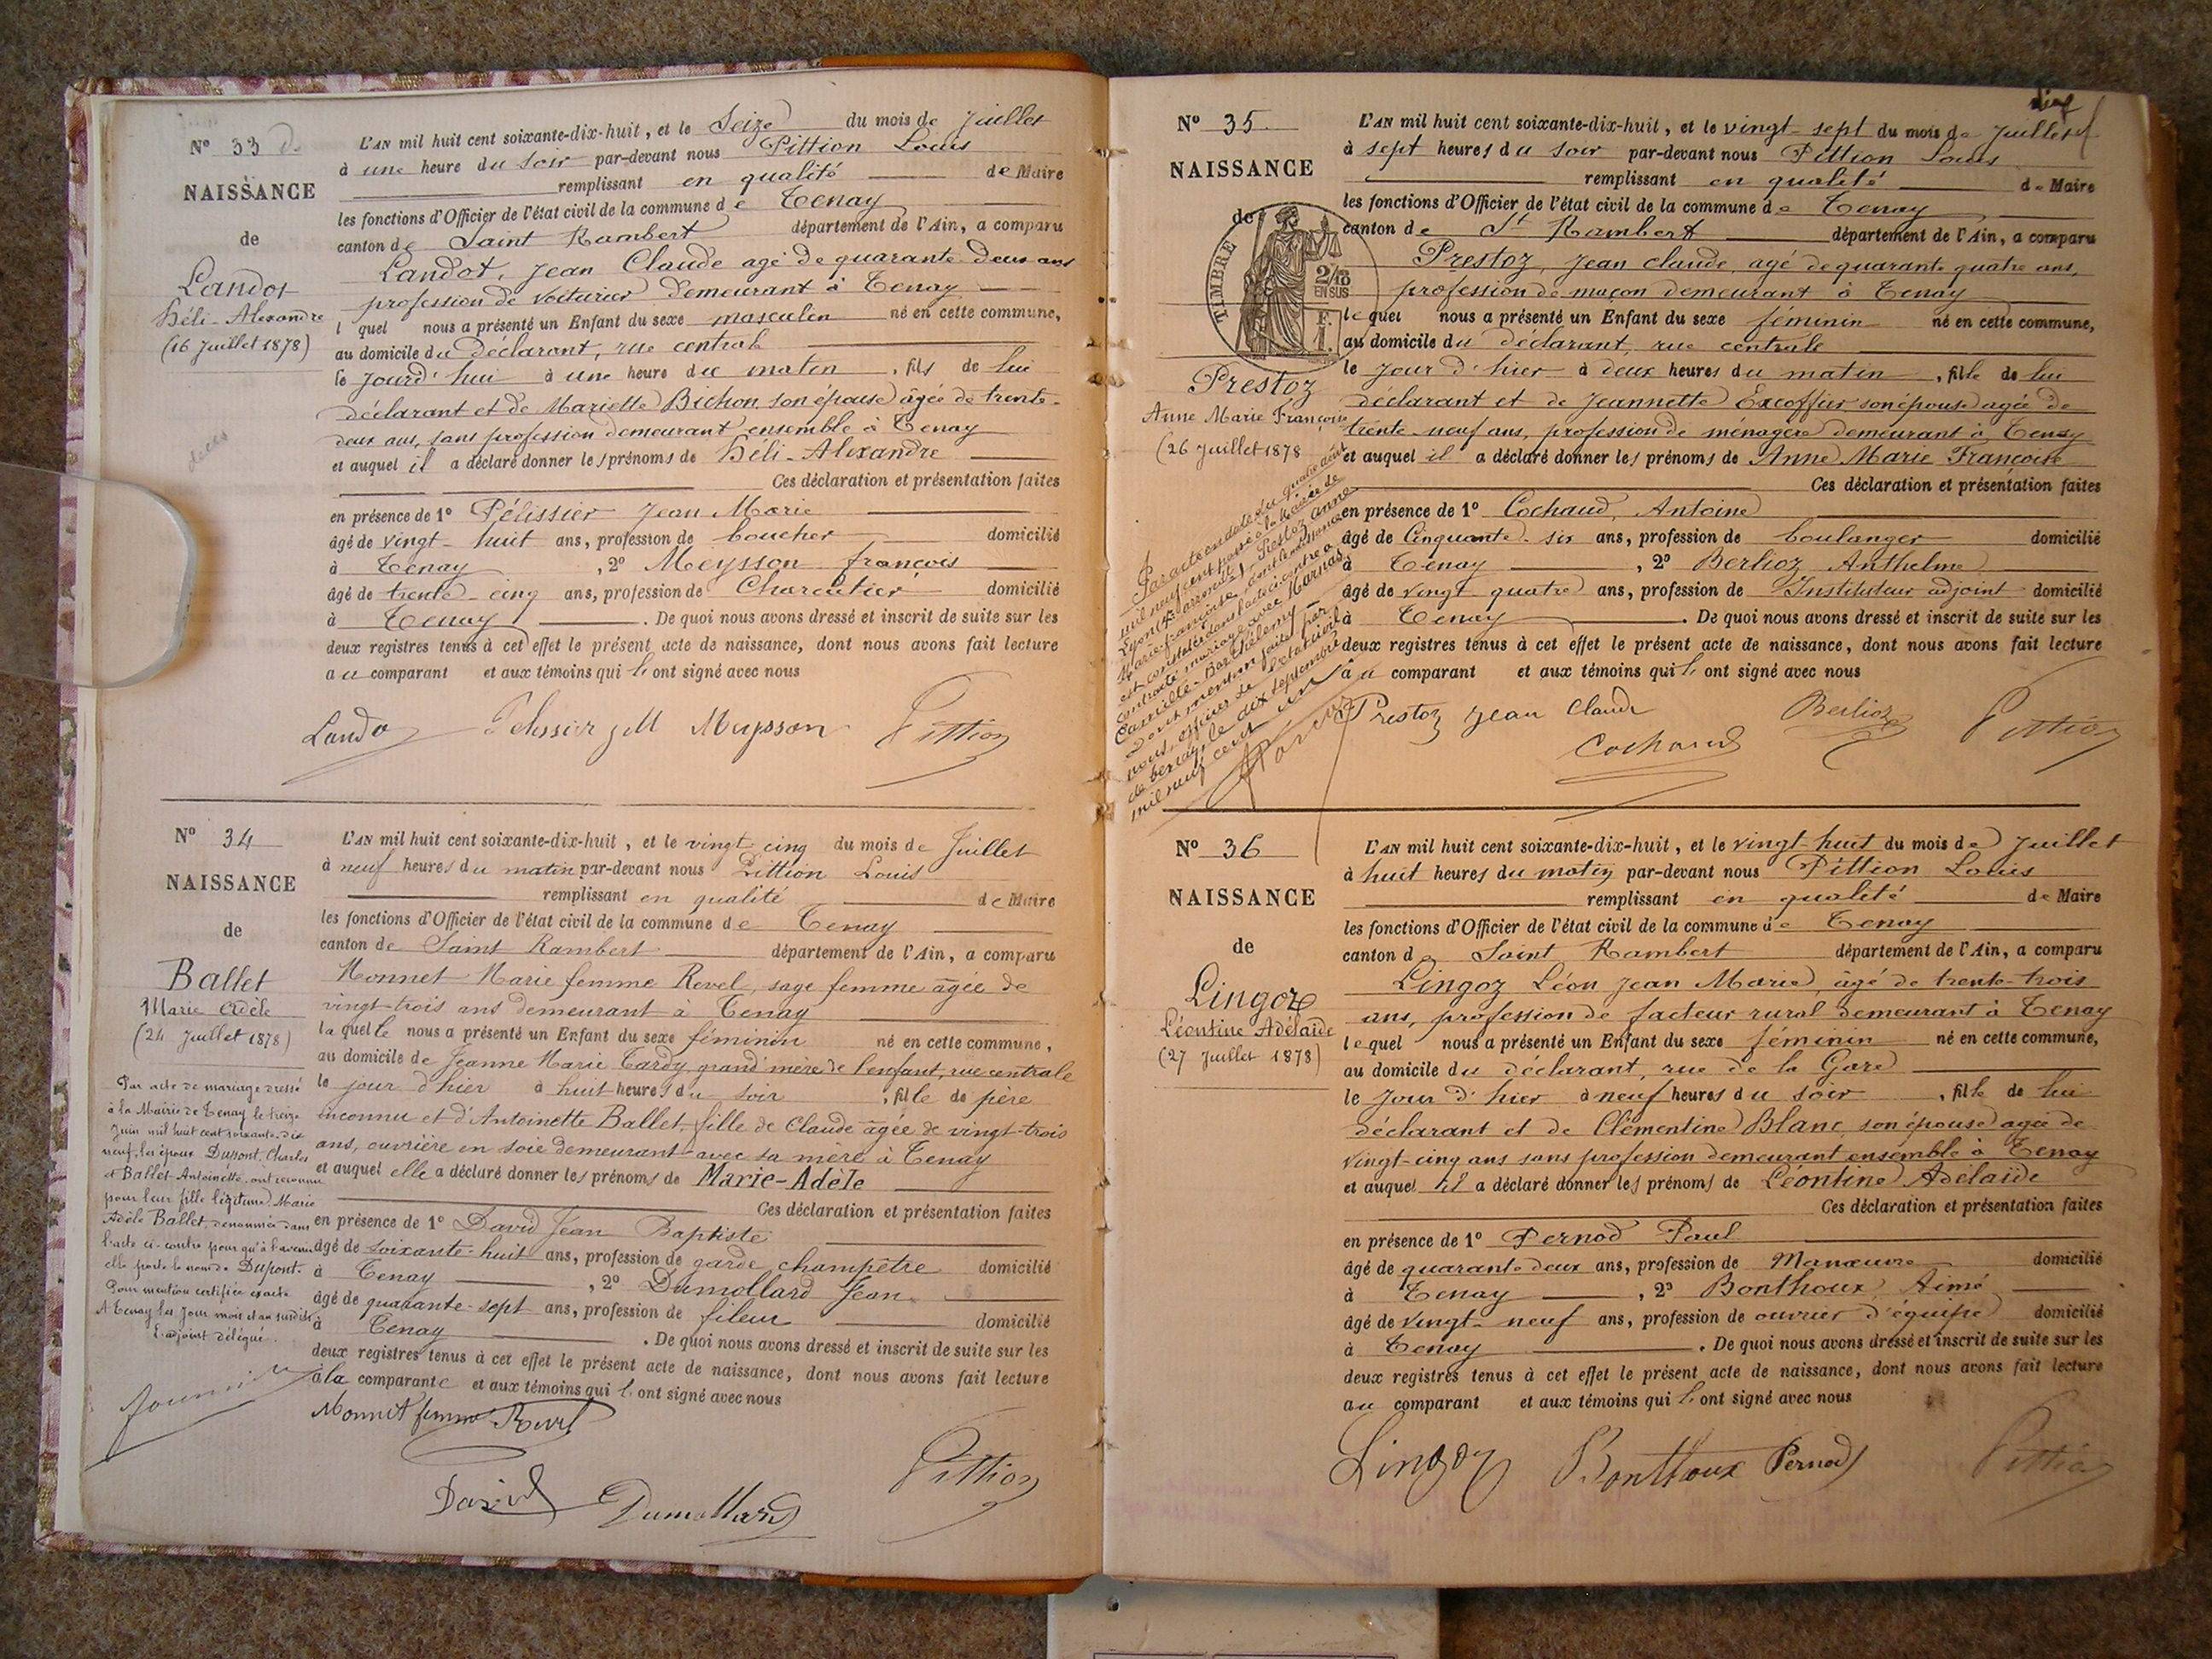 N° 33
NAISSANCE
de
Landot
Héli-Alexandre
(16 Juillet 1878)
L'AN mil huit cent soixante-dix-huit, et le Seize du mois de Juillet
à une heure du soir par-devant nous Pittion Louis
remplissant en qualité de Maire
les fonctions d'Officier de l'état civil de la commune de Tenay
canton de Saint Rambert département de l'Ain, a comparu
Landot, Jean Claude agé de quarante deux ans
profession de voiturier demeurant à Tenay
lequel nous a présenté un Enfant du sexe masculin né en cette commune,
au domicile du déclarant, rue centrale
le jourd'hui à une heure du matin, fils de lui
déclarant et de Mariette Bichon son épouse âgée de trente-
deux ans, sans profession demeurant ensemble à Tenay
et auquel il a déclaré donner les prénoms de Héli-Alexandre
Ces déclaration et présentation faites
en présence de 1° Pélissier Jean Marie
âgé de vingt-huit ans, profession de boucher domicilié
à Tenay, 2° Meysson françois
âgé de trente-cinq ans, profession de Charcutier domicilié
à Tenay. De quoi nous avons dressé et inscrit de suite sur les
deux registres tenus à cet effet le présent acte de naissance, dont nous avons fait lecture
au comparant et aux témoins qui l'ont signé avec nous
Lando Pelissier JM Meysson Pittion
N° 34
NAISSANCE
de
Ballet
Marie Adèle
(24 Juillet 1878)
Par acte de mariage dressé
à la Mairie de Tenay le treize
Juin mil huit cent soixante-dix
neuf, les époux Dupont, Charles
et Ballet Antoinette ont reconnu
pour leur fille légitime Marie
Adèle Ballet, dénommée dans
l'acte ci-contre pour qu'à l'avenir
elle porte le nom de Dupont.
Pour mention certifiée exacte
A Tenay les jour mois et an susdits
L'adjoint délégué.
L'AN mil huit cent soixante-dix-huit, et le vingt cinq du mois de Juillet
à neuf heures du matin par-devant nous Pittion Louis
remplissant en qualité de Maire
les fonctions d'Officier de l'état civil de la commune de Tenay
canton de Saint Rambert département de l'Ain, a comparu
Monnet Marie femme Revel, sage femme âgée de
vingt-trois ans demeurant à Tenay
laquelle nous a présenté un Enfant du sexe féminin né en cette commune,
au domicile de Jeanne Marie Tardy, grand'mère de l'enfant, rue centrale
le jour d'hier à huit heures du soir, fille de père
inconnu et d'Antoinette Ballet, fille de Claude âgée de vingt-trois
ans, ouvrière en soie demeurant avec sa mère à Tenay
et auquel elle a déclaré donner les prénoms de Marie-Adèle
Ces déclaration et présentation faites
en présence de 1° David Jean Baptiste
âgé de soixante-huit ans, profession de garde champêtre domicilié
à Tenay, 2° Dumollard Jean
âgé de quarante-sept ans, profession de fileur domicilié
à Tenay. De quoi nous avons dressé et inscrit de suite sur les
deux registres tenus à cet effet le présent acte de naissance, dont nous avons fait lecture
à la comparante et aux témoins qui l'ont signé avec nous
Monnet femme Revel
David Dumollard Pittion
N° 35
NAISSANCE
de
TIMBRE
2/10
EN SUS
Prestoz
Anne Marie Françoise
(26 Juillet 1878
Par acte en date du quatre août
mil neuf cent passé à la Mairie de
Lyon Prestoz Anne
Marie Françoise dont la naissance
est constatée dans l'acte ci-contre a
contracté mariage avec Marnas
Camille-Barthélemy
Dont mention faite par
nous, officier de l'état civil
de Tenay, le dix septembre
mil neuf cent un
L'AN mil huit cent soixante-dix-huit, et le vingt-sept du mois de Juillet
à sept heures du soir par-devant nous Pittion Louis
remplissant en qualité de Maire
les fonctions d'Officier de l'état civil de la commune de Tenay
canton de St Rambert département de l'Ain, a comparu
Prestoz, Jean claude, agé de quarante quatre ans,
profession de maçon demeurant à Tenay
lequel nous a présenté un Enfant du sexe féminin né en cette commune,
au domicile du déclarant, rue centrale
le jour d'hier à deux heures du matin, fille de lui
déclarant et de Jeannette Excoffier son épouse agée de
trente-neuf ans, profession de ménagère demeurant à Tenay
et auquel il a déclaré donner les prénoms de Anne Marie Françoise
Ces déclaration et présentation faites
en présence de 1° Cochaud, Antoine
âgé de Cinquante-six ans, profession de boulanger domicilié
à Tenay, 2° Berlioz Anthelme
âgé de vingt quatre ans, profession de Instituteur adjoint domicilié
à Tenay. De quoi nous avons dressé et inscrit de suite sur les
deux registres tenus à cet effet le présent acte de naissance, dont nous avons fait lecture
au comparant et aux témoins qui l'ont signé avec nous
Prestoz Jean Claude Berlioz Pittion
Cochaud
N° 36
NAISSANCE
de
Lingoz
Léontine Adélaïde
(27 Juillet 1878)
L'AN mil huit cent soixante-dix-huit, et le vingt-huit du mois de Juillet
à huit heures du matin par-devant nous Pittion Louis
remplissant en qualité de Maire
les fonctions d'Officier de l'état civil de la commune de Tenay
canton de Saint Rambert département de l'Ain, a comparu
Lingoz Léon Jean Marie, âgé de trente-trois
ans, profession de facteur rural demeurant à Tenay
lequel nous a présenté un Enfant du sexe féminin né en cette commune,
au domicile du déclarant, rue de la Gare
le jour d'hier à neuf heures du soir, fille de lui
déclarant et de Clémentine Blanc, son épouse agée de
vingt-cinq ans sans profession demeurant ensemble à Tenay
et auquel il a déclaré donner les prénoms de Léontine Adélaïde
Ces déclaration et présentation faites
en présence de 1° Pernod Paul
âgé de quarante deux ans, profession de Manœuvre domicilié
à Tenay, 2° Bonthoux Aimé
âgé de vingt-neuf ans, profession de ouvrier d'équipe domicilié
à Tenay. De quoi nous avons dressé et inscrit de suite sur les
deux registres tenus à cet effet le présent acte de naissance, dont nous avons fait lecture
au comparant et aux témoins qui l'ont signé avec nous
Lingoz Bonthoux Pernod Pittion